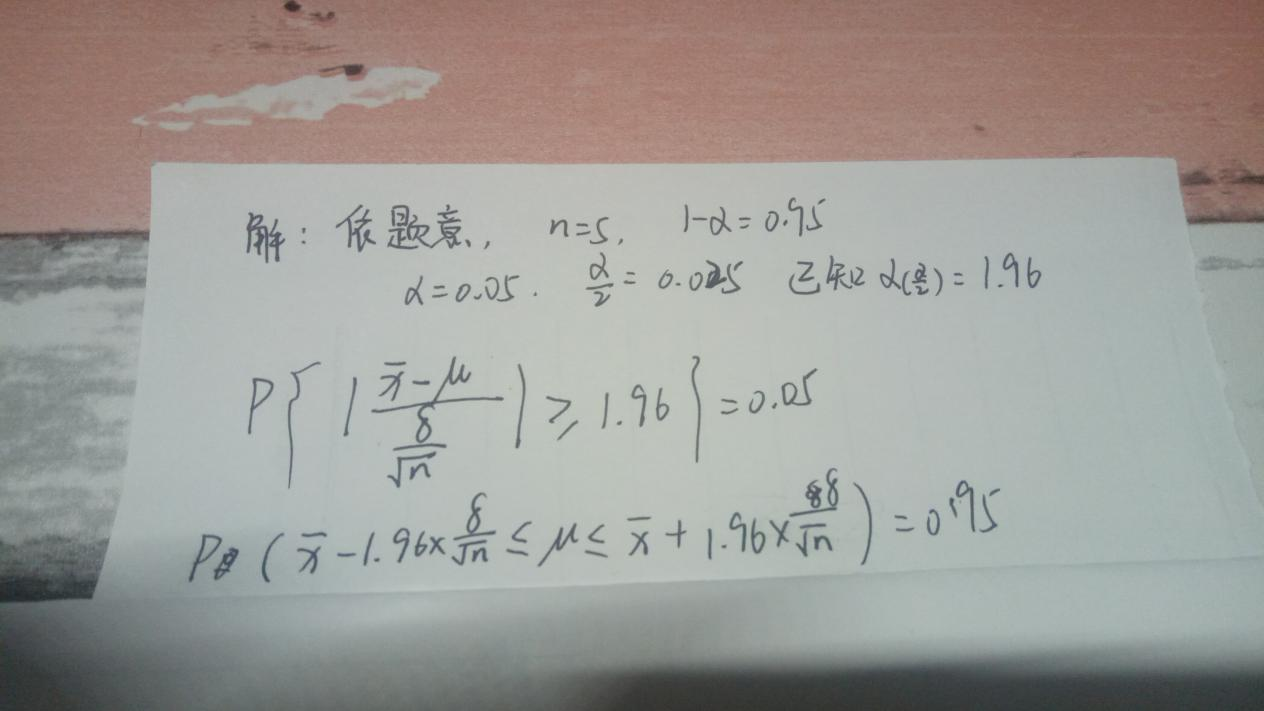 解：依题意， n=5, 1-α=0.95
α=0.05. α/2=0.025 已知 α(α/2)=1.96
P{|(x̄-μ)/(8/√n)|≥1.96}=0.05
P(x̄-1.96×8/√n≤μ≤x̄+1.96×8/√n)=0.95